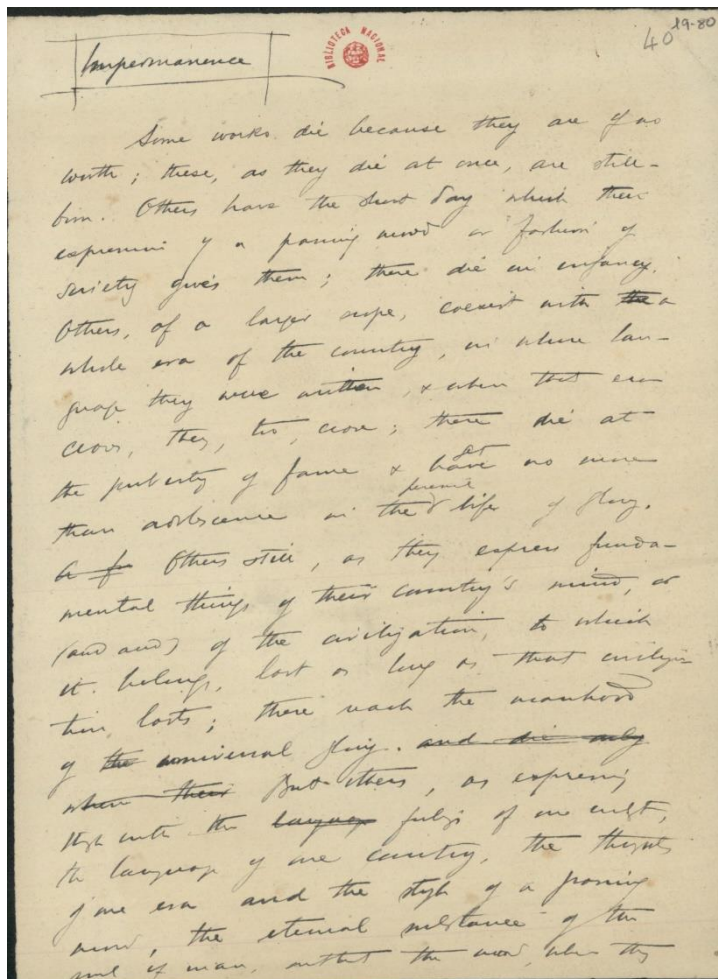 19-80
40
BIBLIOTECA NACIONAL
Impermanence
Some works die because they are of no
worth; these, as they die at once, are still-
born. Others have the short day which their
expression of a passing mood or fashion of
society gives them; these die in infancy.
Others, of a larger scope, coexist with the a
whole era of the country, in whose lan-
guage they were written, & when that era
closes, they, too, close; these die at
the puberty of fame & have get no more
than adolescence in the perennial life of glory.
Others still, as they express funda-
mental things of their country's mind, or
(and and) of the civilization, to which
it belongs, last as long as that civiliza-
tion lasts; these reach the manhood
of the universal glory. and die only
when their But others, as expressing
though with the language of one
the language of one country, the thoughts
of one era and the style of a passing
mood, the eternal substance of the
soul of man, the mood, when they